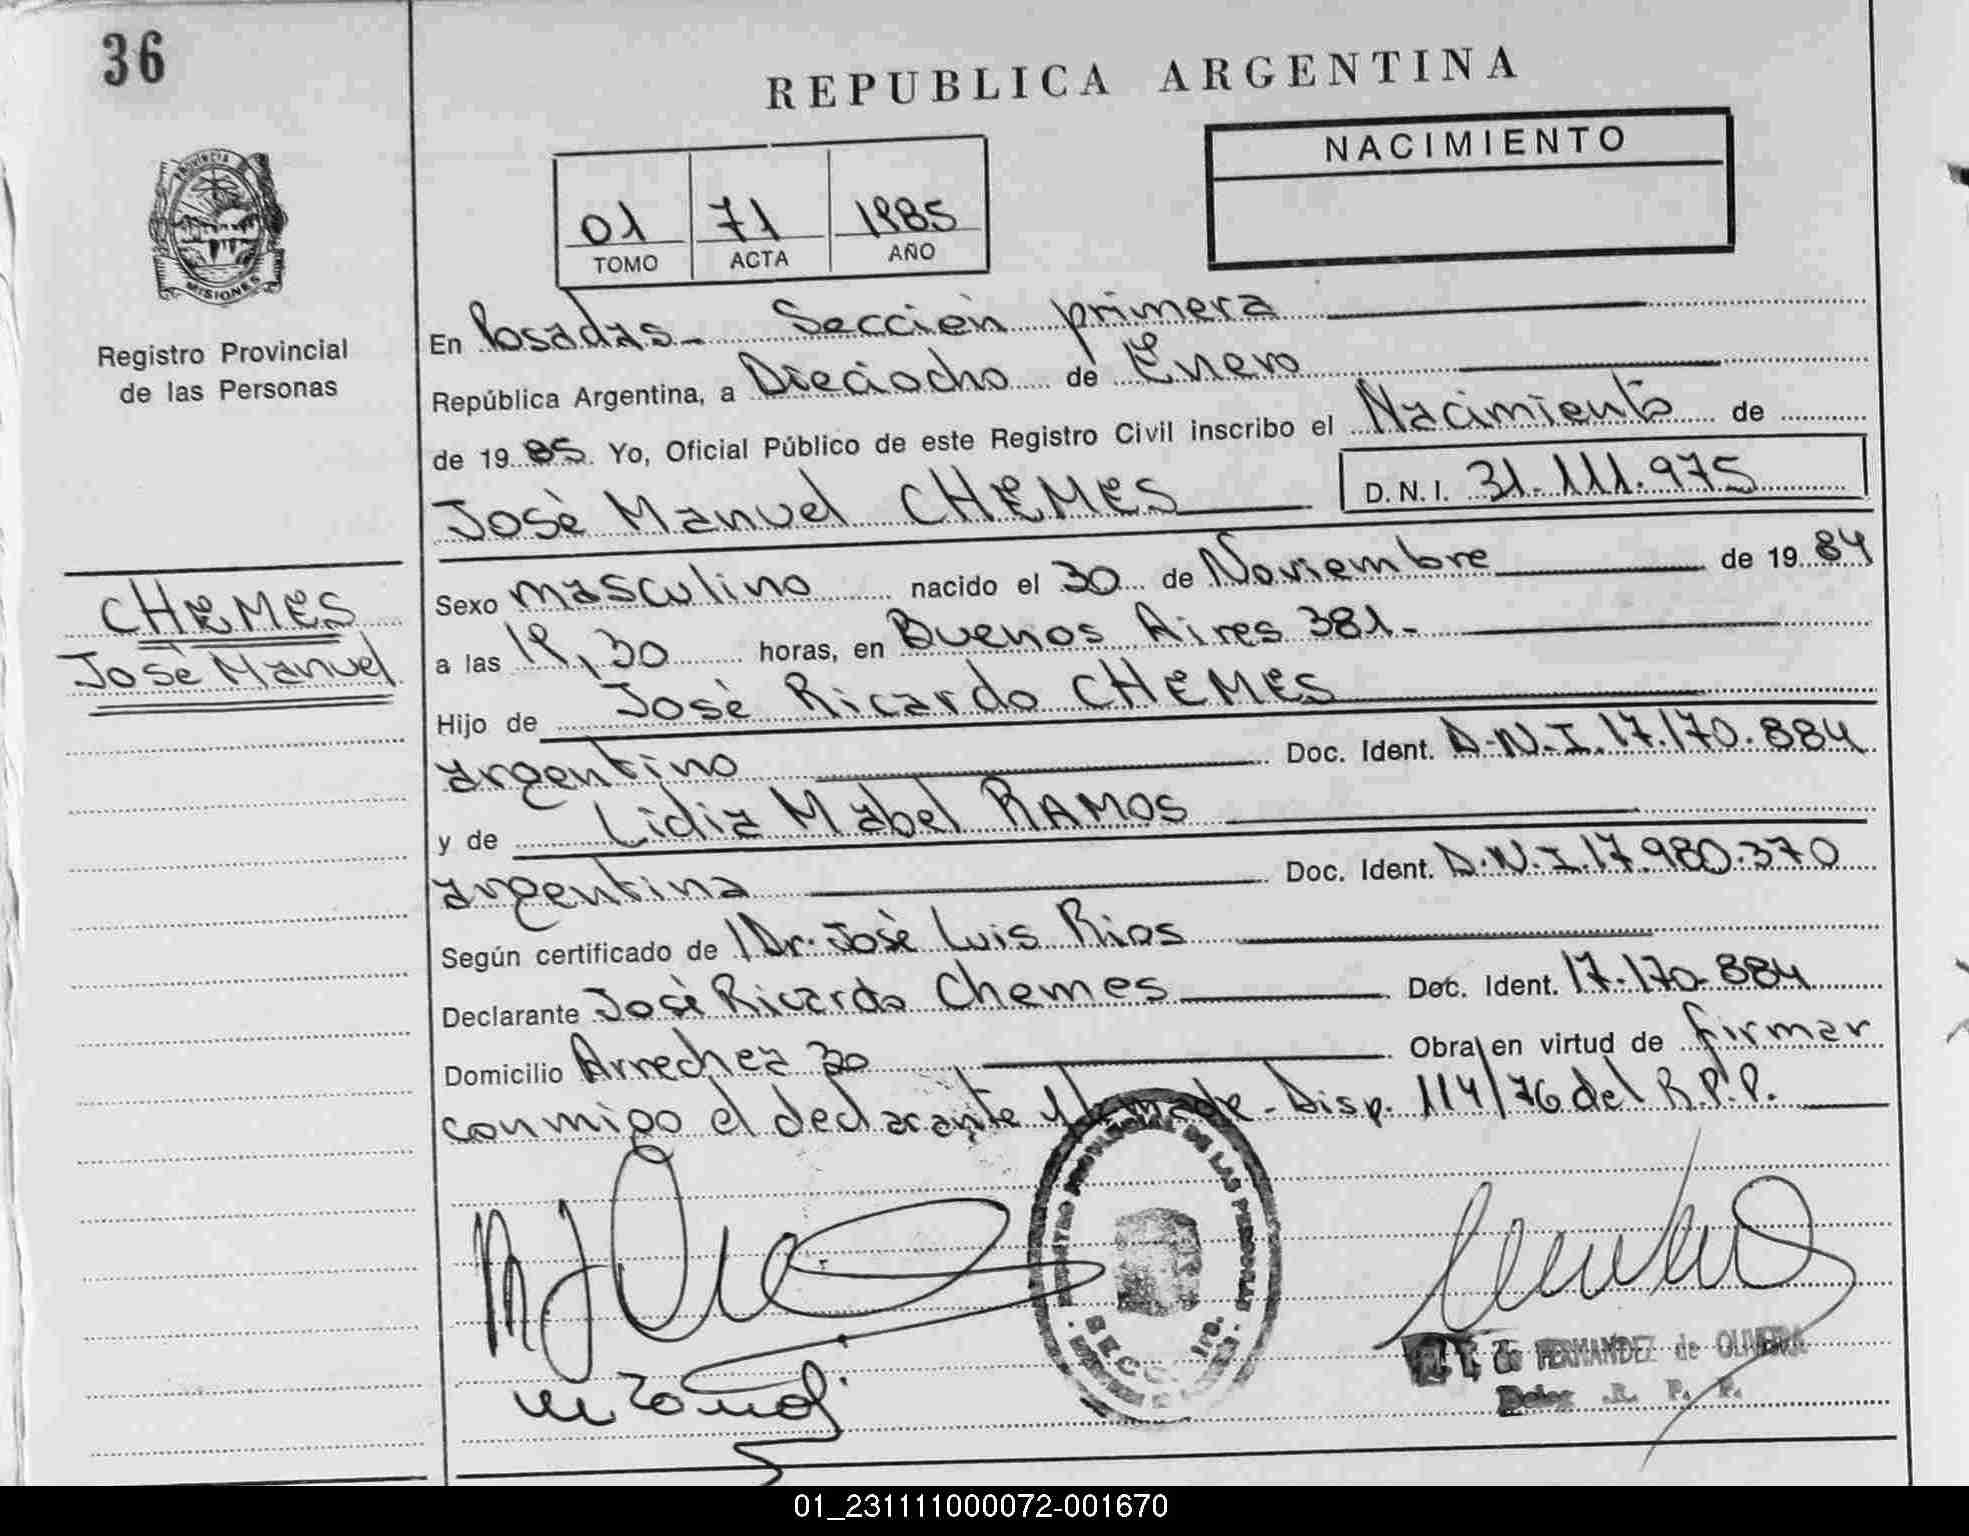 36
REPUBLICA ARGENTINA
NACIMIENTO
01 71 1985
TOMO ACTA AÑO
PROVINCIA
MISIONES
Registro Provincial
de las Personas
En Posadas- Sección primera
República Argentina, a Dieciocho de Enero
de 1985. Yo, Oficial Público de este Registro Civil inscribo el Nacimiento de
José Manuel CHEMES D.N.I. 31.111.975
CHEMES
José Manuel
Sexo masculino nacido el 30 de Noviembre de 1984
a las 19,30 horas, en Buenos Aires 381.-
Hijo de José Ricardo CHEMES
argentino Doc. Ident. D.N.I.17.170.884
y de Lidia Mabel RAMOS
argentina Doc. Ident. D.N.I.17.980.370
Según certificado de Dr. José Luis Rios
Declarante José Ricardo Chemes Doc. Ident. 17.170.884
Domicilio Arrechea 30 Obra en virtud de firmar
conmigo el declarante y la madre- Disp. 114/76 del R.P.P.
REGISTRO PROVINCIAL DE LAS PERSONAS
SECC 1ra.
de FERNANDEZ de OLIVEIRA
Deleg. R. P. P.
01_231111000072-001670